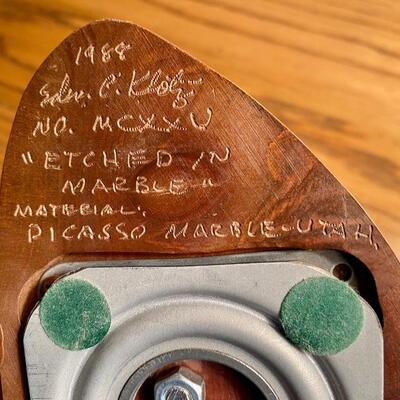 1988
Edw. C. Klotz
NO. MCXXV
"ETCHED IN
MARBLE"
MATERIAL.
PICASSO MARBLE-UTAH.